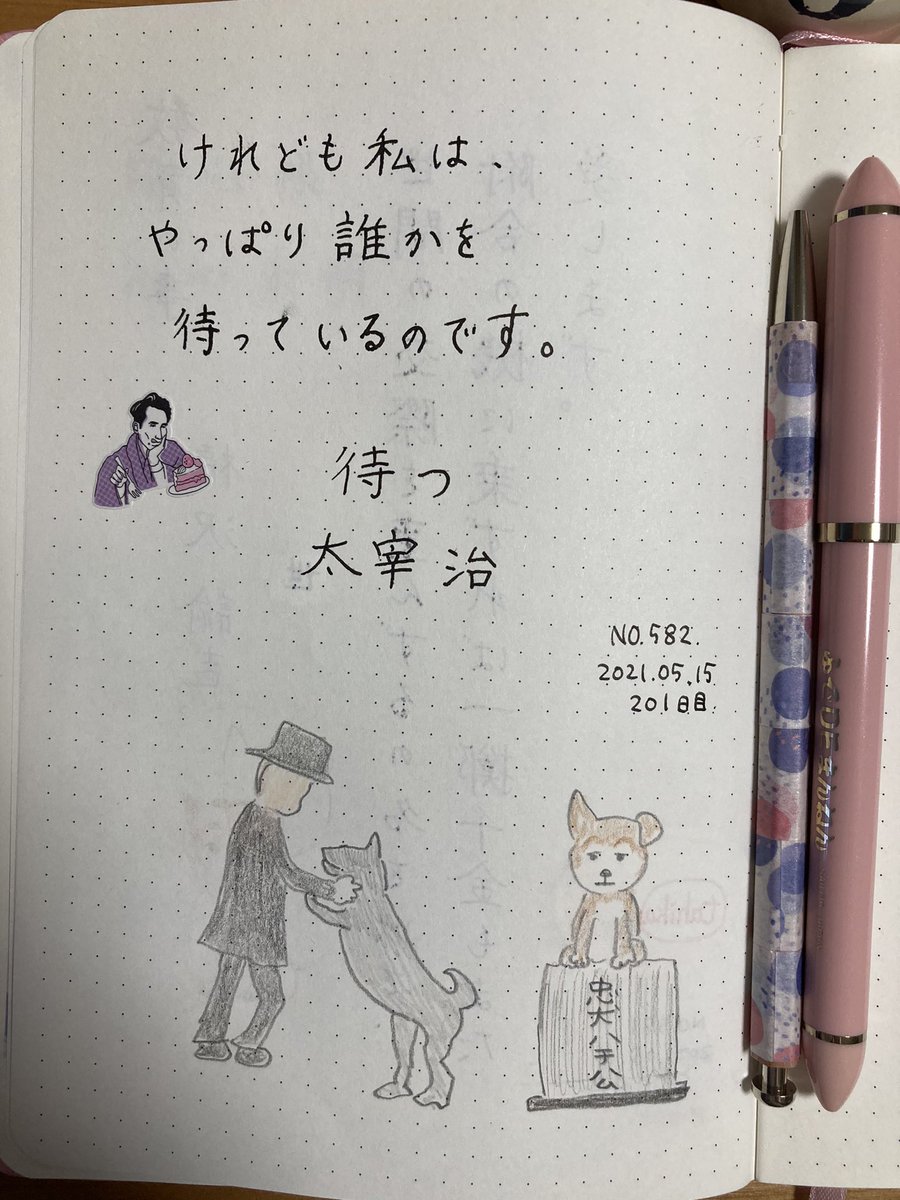 けれども私は、
やっぱり誰かを
待っているのです。
待つ
太宰治
NO.582.
2021.05.15
201日目
忠犬ハチ公